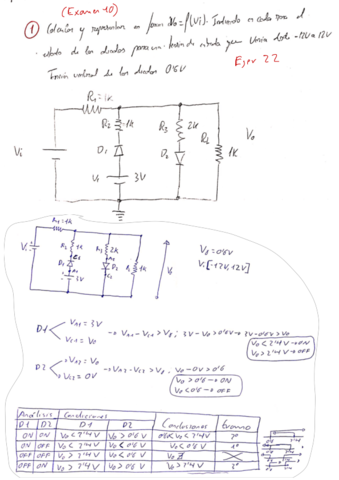 (Examen 10)
① Calcular y representar en forma Vo = f(Vi). Indicando en cada tramo el
estado de los diodos para una tensión de entrada que varía desde -12V a 12V
Tensión umbral de los diodos 0'6V
Ejer 22
R1=1k
R2 1k
R3 2k
RL 1k
D1
D2
Vi
3V
Vo
R1=1k
Vγ=0'6V
Vi[-12V,12V]
D1
VA1=3V
VC1=Vo
→ VA1-VC1>Vγ; 3V-Vo>0'6V → 3V-0'6V>Vo
Vo<2'4V→ON
Vo>2'4V→OFF
D2
VA2=Vo
VC2=0V
→ VA2-VC2>Vγ; Vo-0V>0'6
Vo>0'6→ON
Vo<0'6→OFF
Análisis Condiciones
D1 D2 D1 D2 Condiciones tramo
ON ON Vo<2'4V Vo>0'6V 0'6<Vo<2'4V 2º
ON OFF Vo<2'4V Vo<0'6V Vo<0'6V 1º
OFF OFF Vo>2'4V Vo<0'6V
OFF ON Vo>2'4V Vo>0'6V Vo>2'4V